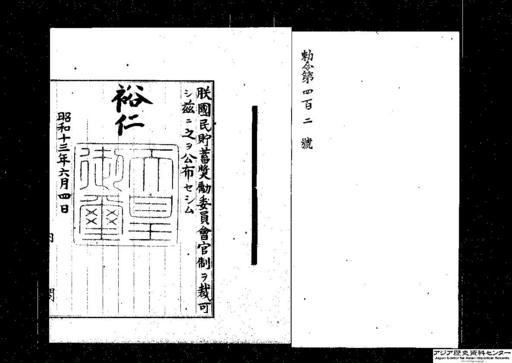 勅令第四百二號
朕國民貯蓄奬勵委員會官制ヲ裁可
シ茲ニ之ヲ公布セシム
裕仁
天皇御璽
昭和十三年六月四日
内閣
アジア歴史資料センター
Japan Center for Asian Historical Records